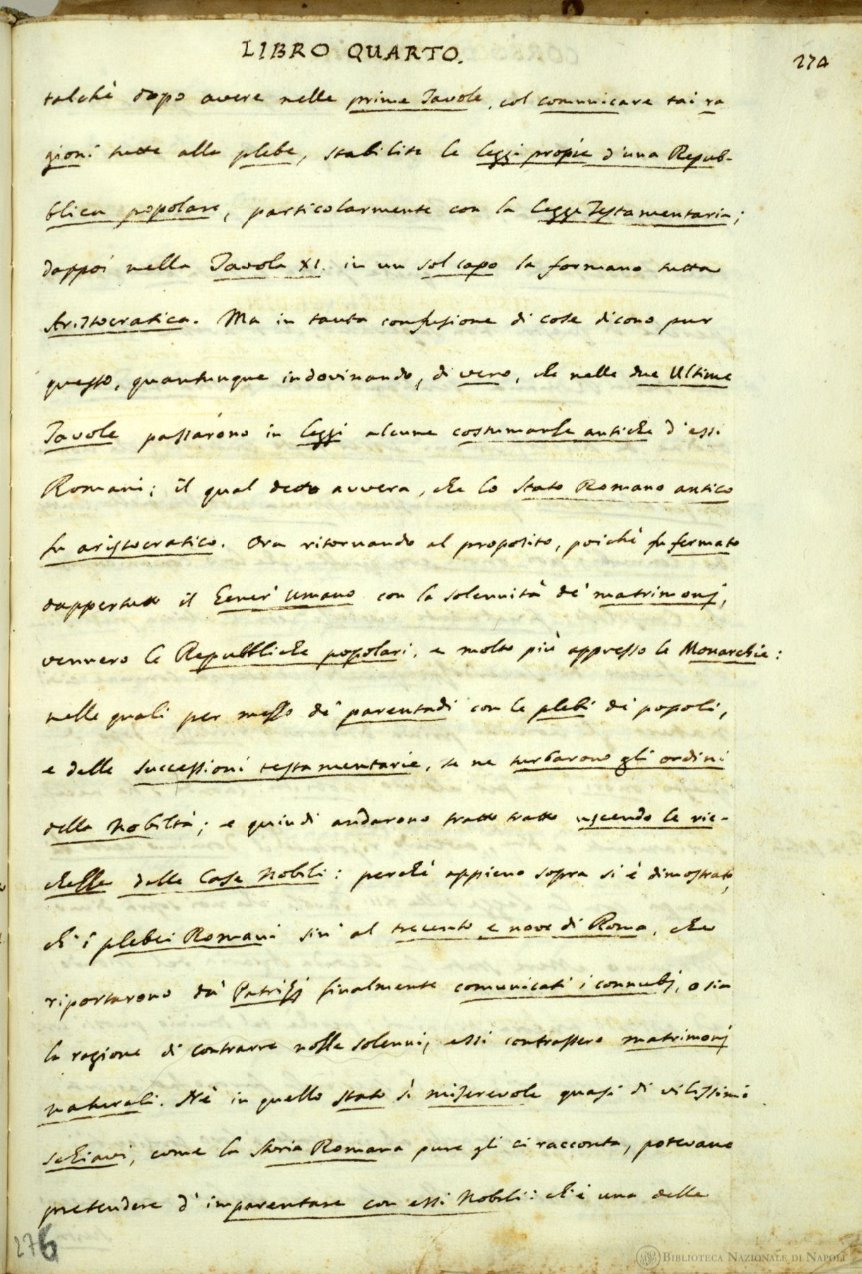 LIBRO QUARTO.
274
talchè dopo avere nelle prime Tavole, col comunicare tai ra
gioni tutte alla plebe, stabilite le leggi propie d'una Repub-
blica popolare, particolarmente con la legge Testamentaria;
dappoi nella Tavola XI. in un sol capo la formano tutta
Aristocratica. Ma in tanta confusione di cose dicono pur
questo, quantunque indovinando, di vero, che nelle due Ultime
Tavole passarono in leggi alcune costumanze antiche d'essi
Romani; il qual detto avvera, che lo Stato Romano antico
fu aristocratico. Ora ritornando al proposito, poichè fu fermato
dappertutto il Gener' Umano con la solennità de' matrimonj,
vennero le Repubbliche popolari, e molto più appresso le Monarchie:
nelle quali per mezzo de' parentadi con le plebi de' popoli,
e delle successioni testamentarie, se ne turbarono gli ordini
della Nobiltà; e quindi andarono tratto tratto uscendo le ric-
chezze dalle Case Nobili: perchè appieno sopra si è dimostrato,
ch' i plebei Romani sin' al trecento e nove di Roma, che
riportarono da' Patrizj finalmente comunicati i connubj, o sia
la ragione di contrarre nozze solenni, essi contrassero matrimonj
naturali. Nè in quello stato sì miserevole quasi di vilissimi
schiavi, come la Storia Romana pure gli ci racconta, potevano
pretendere d' imparentare con essi Nobili: ch'è una delle
276
BIBLIOTECA NAZIONALE DI NAPOLI